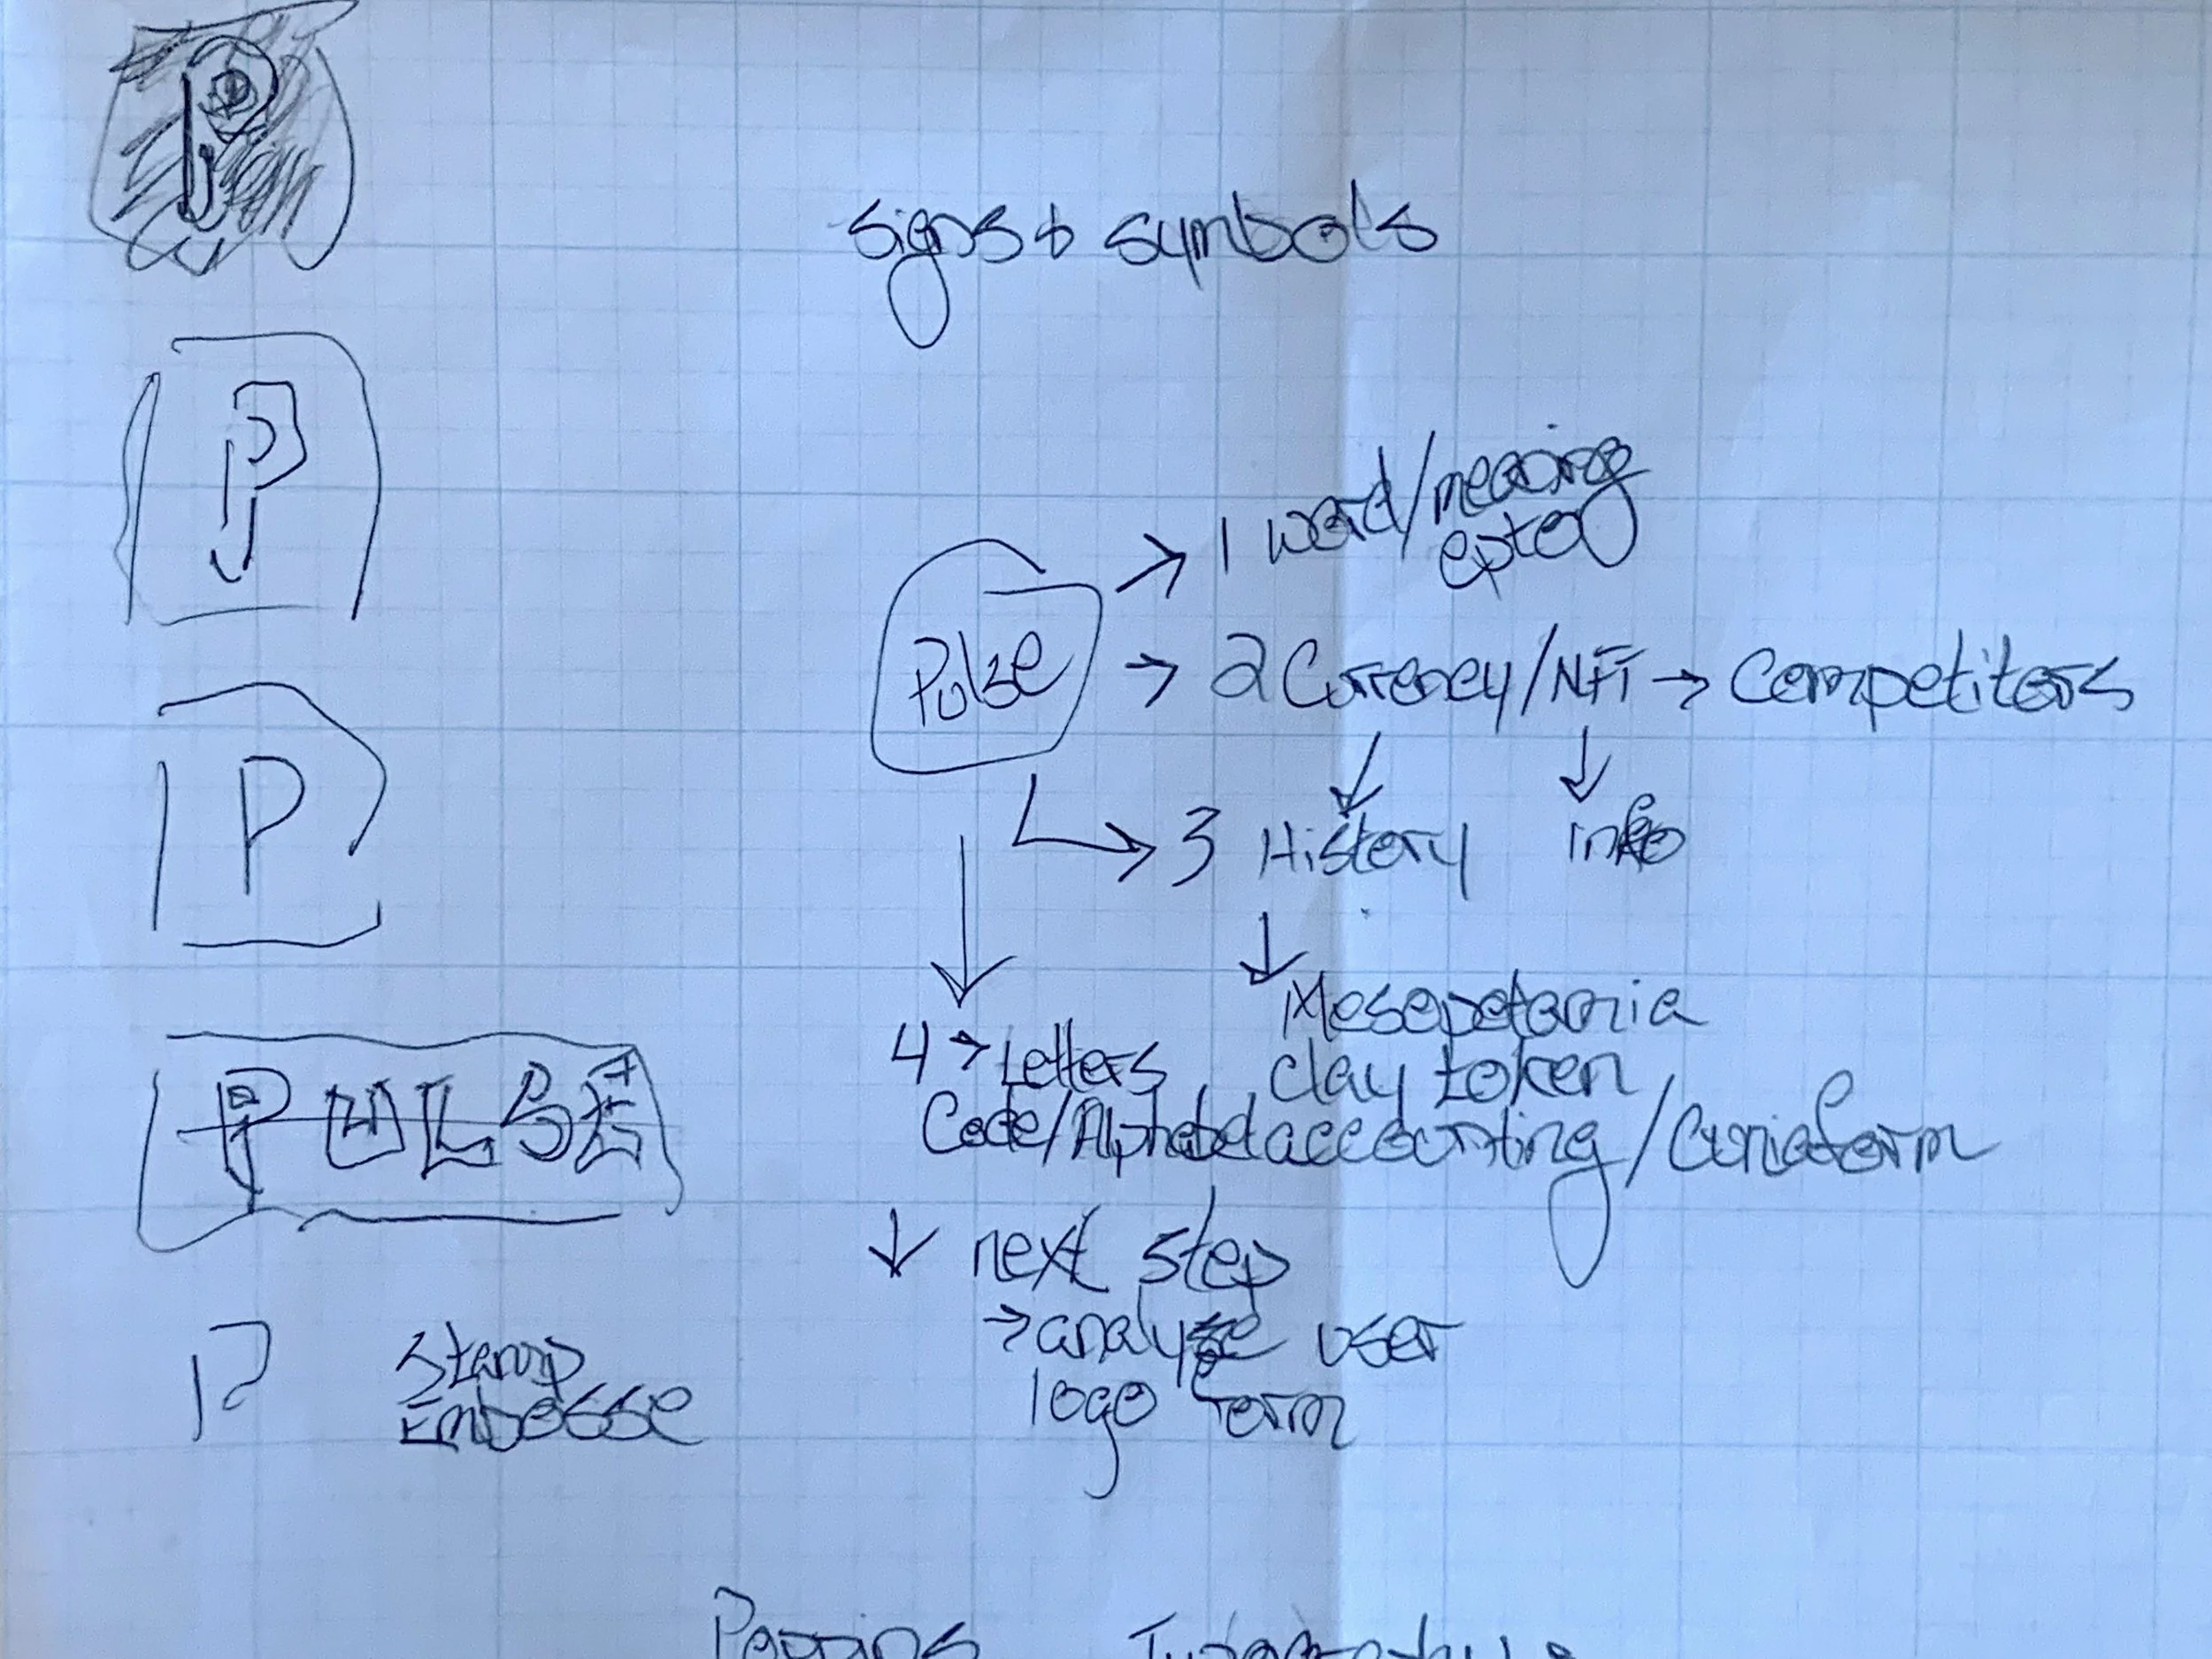 P
signs & symbols
P
Pulse
→ 1 word/meaning
→ 2 Currency/NFT → Competitors
P
→ 3 History
info
Mesopotamia
clay token
accounting/Cuniaform
4 → Letters
Code/Alphabet
PULSE
↓ next step
→ analyse user
logo form
P
Stamp
Embosse